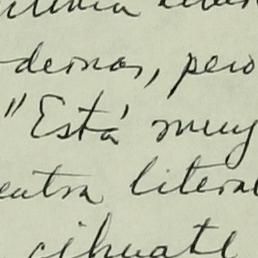 dernos, pero
"Está muy
entra literal
cihuatl